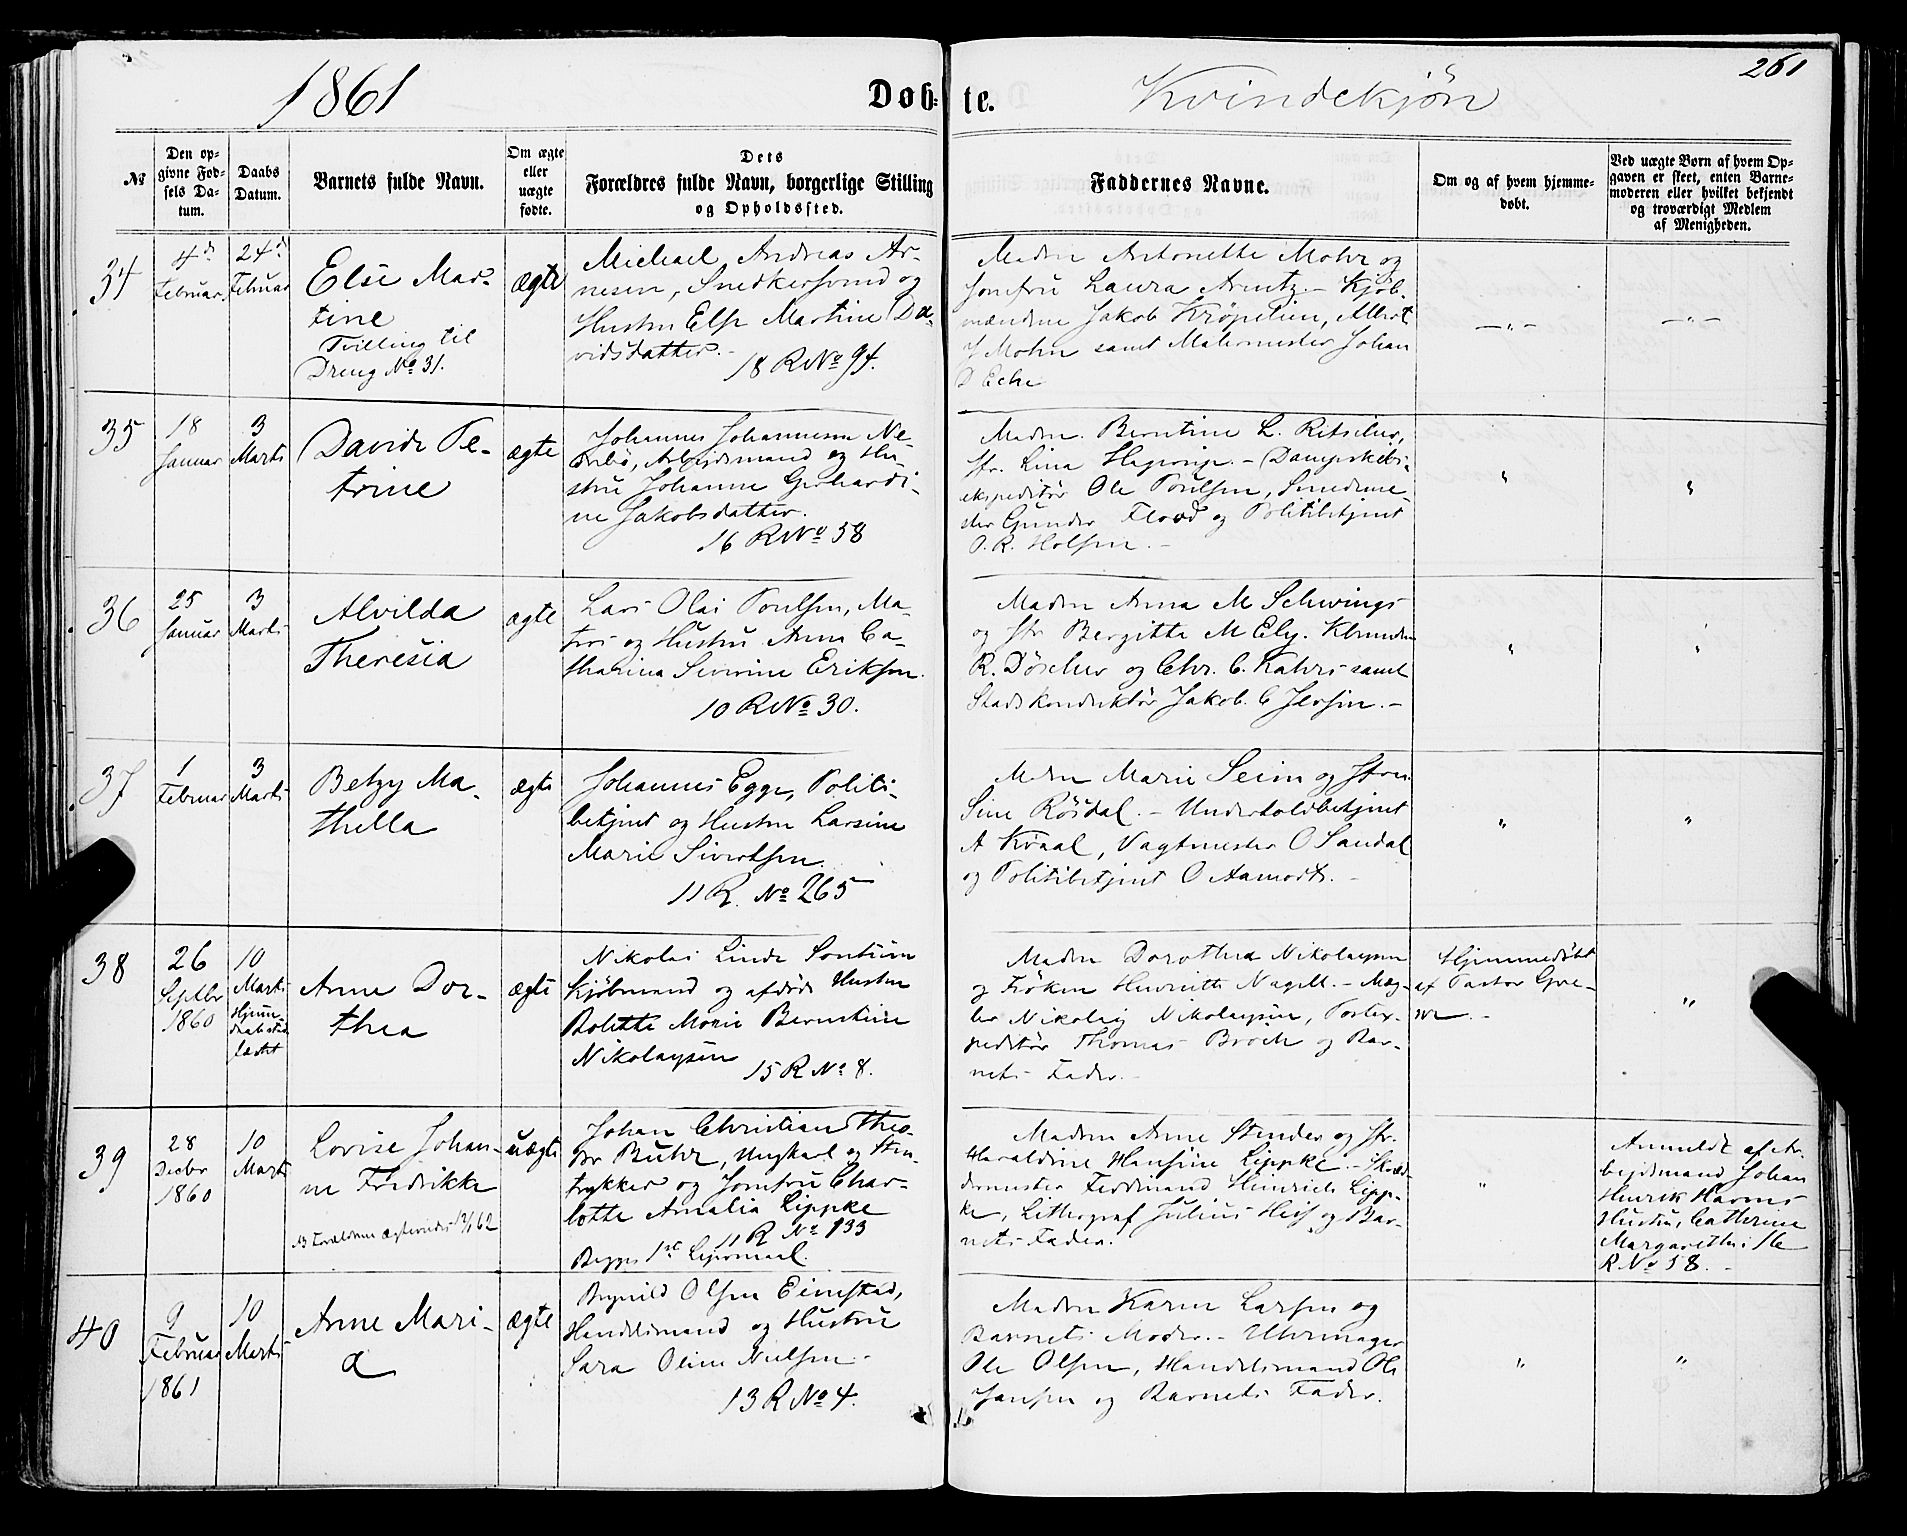 1861
Døb-
te.
Kvindekjøn
261
№
Den op-
givne Fød-
sels Da-
tum.
Daabs
Datum.
Barnets fulde Navn.
Om ægte
eller
uægte
fødte.
Dets
Forældres fulde Navn, borgerlige Stilling
og Opholdssted.
Faddernes Navne.
Om og af hvem hjemme-
døbt.
Ved uægte Børn af hvem Op-
gaven er skeet, enten Barne-
moderen eller hvilket bekjendt
og troværdigt Medlem
af Menigheden.
34
4d
Februar
24d
Februar
Else Mar-
tine
Tvilling til
Dreng No 31.
ægte
Michael Andreas Ar-
nesen, Snedkersvend og
Hustru Else Martine Da-
vidsdatter.-
18 R No 94.
Madm Antonette Mohr og
Jomfru Laura Arentz.- Kjøb-
mændene Jakob Krøpelien, Albert
J Mohn samt Malermester Johan
D
—„—
—„—
35
18
Januar
3
Marts
Davide Pe-
trine
ægte
Johannes Johannesen Ne-
, Arbeidsmand og Hu-
stru Johanne Gerhardi-
ne Jakobsdatter.
16 R No 58
Madm. Berntine L. Ritscher,
Jfr. Lina Hagerup.- Dampskibs-
ekspeditør Ole Poulsen, Smedme-
ster Gunder Flood og Politibetjent
O. R. Holsen.-
„
„
36
25
Januar
3
Marts
Alvilda
Theresia
ægte
Lars Olai Poulsen, Ma-
tros og Hustru Anna Ca-
tharina Severine Eriksen.
10 R No 30.
Madm Anna M Schwings
og Jfr Bergitte M Ely.
R. Døscher og Chr. C. Kahrs samt
Stadskonduktør Jakob C Jersin.-
„
„
37
1
Februar
3
Marts
Betzy Ma-
thella
ægte
Johannes Egge, Politi-
betjent og Hustru Larsine
Marie Sivertsen.
11 R. No 265
Madm Marie Seim og Jfru
Sine Røsdal.- Underholdbetjent
A Kvaal, Vagtmester O Sandal
og Politibetjent O Aamodt.-
„
„
38
26
Septbr
1860
10
Marts
Hjem-
daabstad-
fæstet
Anne Dor-
thea
ægte
Nikolai Linde Sontum
Kjøbmand og afdøde Hustru
Bolette Marie Berntine
Nikolaysen
15 R No 8.
Madm Dorothea Nikolaysen
og Frøken Henriette Nagell.- Mæg-
ler Nikolaij Nikolaysen, Postex-
peditør Thomas Broch og Bar-
nets Fader.-
Hjemmedøbt
af Pastor Gre-
ve.-
„
39
28
Decbr
1860
10
Marts
Lovise Johan-
ne Fredrikke
NB Forældrene ægteviede 12/1 62
uægte
Johan Christian Theo-
dor Buhr, Ungkarl og Sten-
trykker og Jomfru Char-
lotte Amalia Lippke
11 R No 133
Begges 1ste Leiermaal.
Madm Anne Stender og Jfr.
Haraldine Hansine Lippke.- Skræd-
dermester Ferdinand Heinrich Lipp-
ke, Lithograf Julius og Bar-
nets Fader.
„
Anmeldt af Ar-
beidsmand Johan
Henrik Harms
Hustru, Catherine
Margarethe; 16
R No 58.-
40
9
Februar
1861
10
Marts
Anne Mari-
a
ægte
Brynild Olsen Eimstad,
Handelsmand og Hustru
Sara Oline Nielsen.-
13 R No 4.
Madm Karen Larsen og
Barnets Moder.- Uhrmager
Ole Olsen, Handelsmand Ole
Jansen og Barnets Fader.
„
„